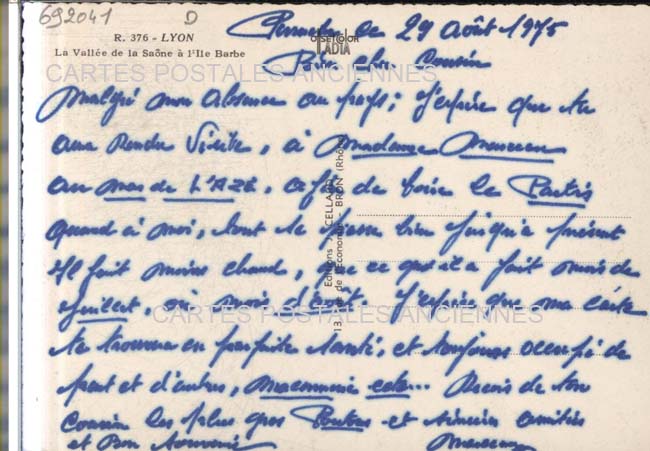 692041 D
R. 376 - LYON
La Vallée de la Saône à l'Ile Barbe
OFFSETCOLOR
LADIA
le 29 Août 1975
Bien cher Cousin
CARTES POSTALES ANCIENNES
malgré mon absence au pays; j'espère que tu
aura Rendu Visite, à madame
au mas de L'AZÉ, afin de boire le Pastis
quand à moi, tout se passe bien jusqu'à présent
il fait moins chaud, que ce qu'il a fait mois de
juillet, ni mois d'août. J'espère que ma carte
CARTES POSTALES ANCIENNES
te trouvera en parfaite santé, et toujours occupé de
part et d'autres, maçonnerie ... Recois de ton
Cousin les plus gros et sincères amitiés
et Bon Souvenir
Editions J. CELLARD
BRON (Rhône)